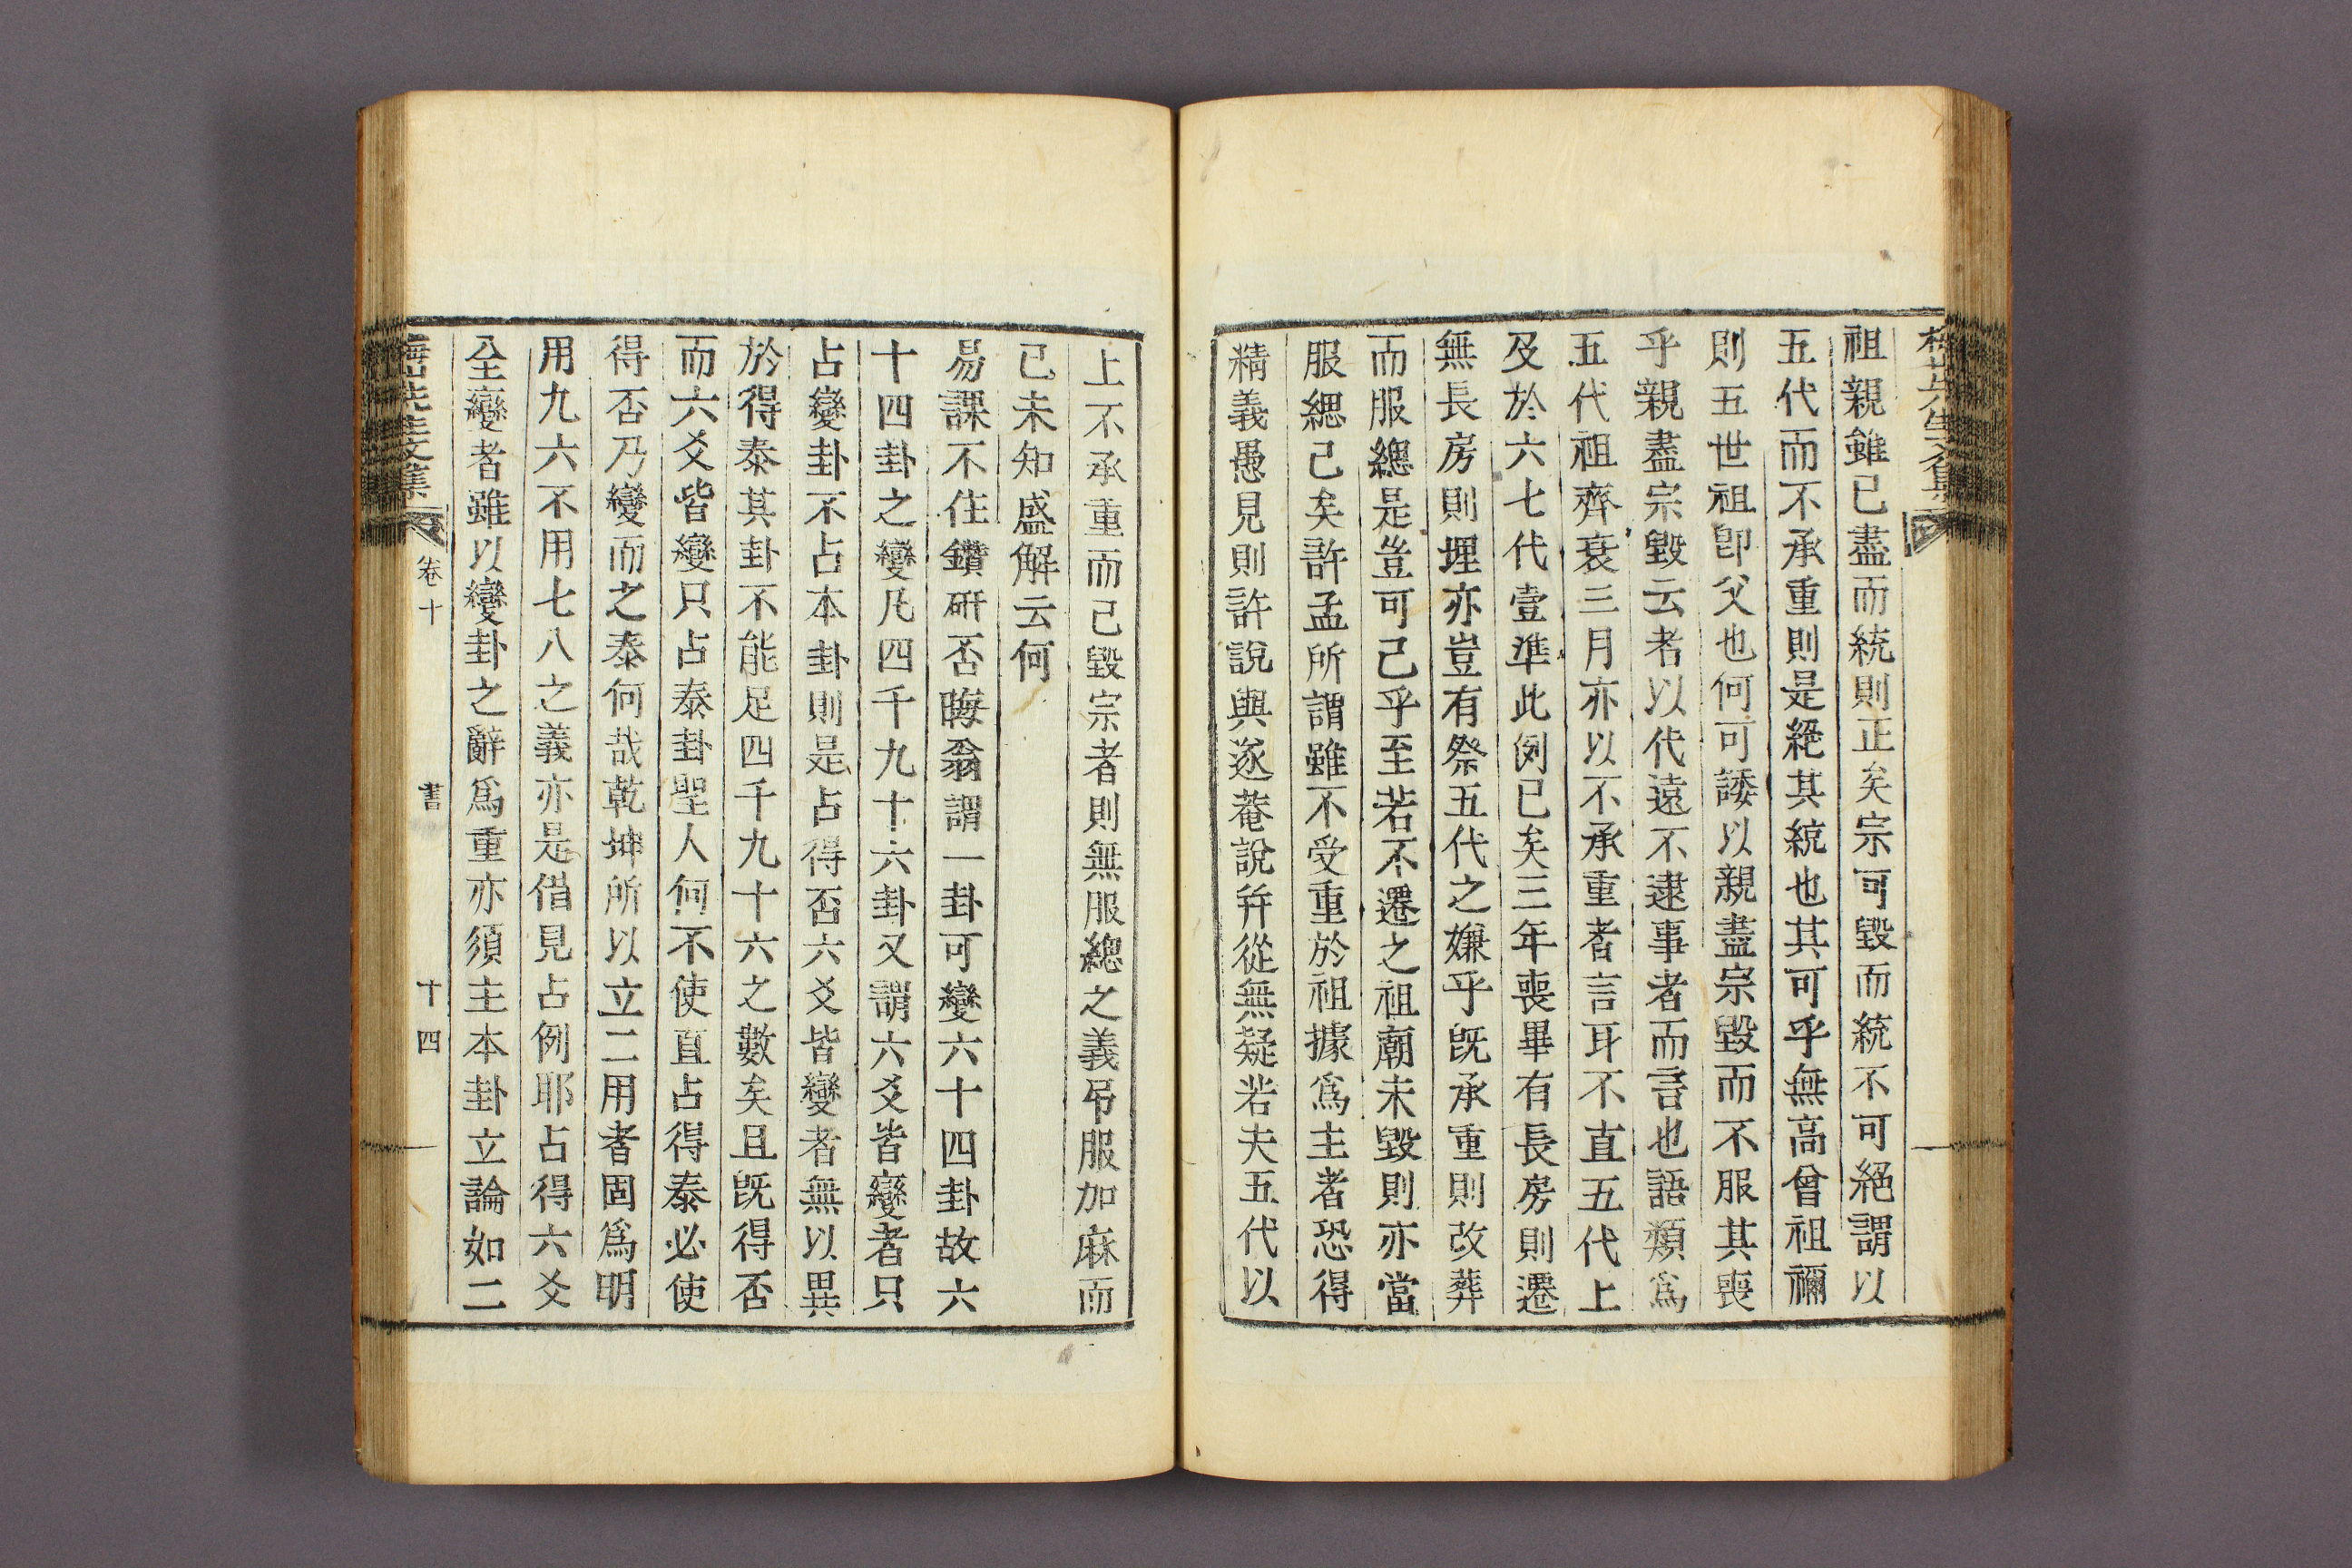 祖親雖已盡而統則正矣宗可毀而統不可絕謂以
五代而不承重則是絕其統也其可乎無高曾祖禰
則五世祖卽父也何可諉以親盡宗毀而不服其喪
乎親盡宗毀云者以代遠不逮事者而言也語類爲
五代祖齊衰三月亦以不承重者言耳不直五代上
及於六七代壹準此例已矣三年喪畢有長房則遷
無長房則埋亦豈有祭五代之嫌乎旣承重則改葬
而服緦是豈可已乎至若不遷之祖廟未毀則亦當
服緦已矣許孟所謂雖不受重於祖據爲主者恐得
精義愚見則許說與遂菴說幷從無疑若夫五代以
上不承重而已毀宗者則無服緦之義吊服加麻而
已未知盛解云何
易課不住鑽硏否晦翁謂一卦可變六十四卦故六
十四卦之變凡四千九十六卦又謂六爻皆變者只
占變卦不占本卦則是占得否六爻皆變者無以異
於得泰其卦不能足四千九十六之數矣且旣得否
而六爻皆變只占泰卦聖人何不使直占得泰必使
得否乃變而之泰何哉乾坤所以立二用者固爲明
用九六不用七八之義亦是借見占例耶占得六爻
全變者雖以變卦之辭爲重亦須主本卦立論如二
梅山先生文集 卷十 書 十四